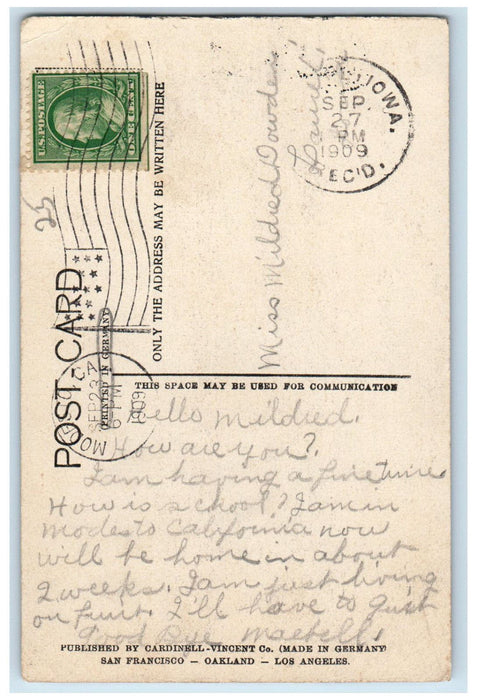 U.S.POSTAGE
ONE CENT
25
POST CARD
PRINTED IN GERMANY
ONLY THE ADDRESS MAY BE WRITTEN HERE
MO CAL
SEP 23
6-PM
1909
IOWA.
SEP.
27
PM
1909
REC'D.
Miss Mildred Dowden
THIS SPACE MAY BE USED FOR COMMUNICATION
Hello Mildred.
How are you?
I am having a fine time
How is school? I am in
Modesto California now
will be home in about
2 weeks. I am just living
on fruit. I'll have to quit
Good Bye Maebell.
PUBLISHED BY CARDINELL-VINCENT CO. (MADE IN GERMANY)
SAN FRANCISCO — OAKLAND — LOS ANGELES.